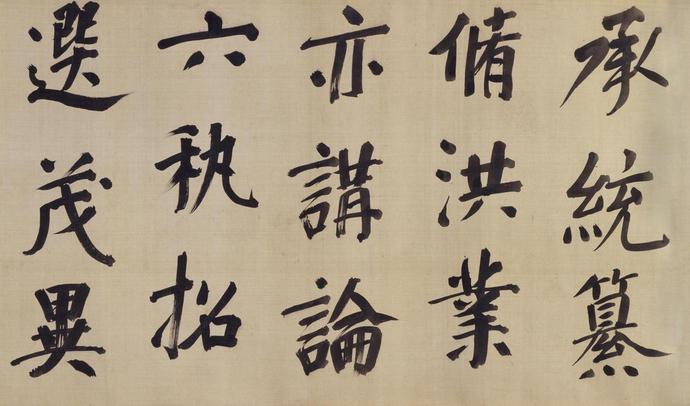 承統纂
脩洪業
亦講論
六秇招
選茂異